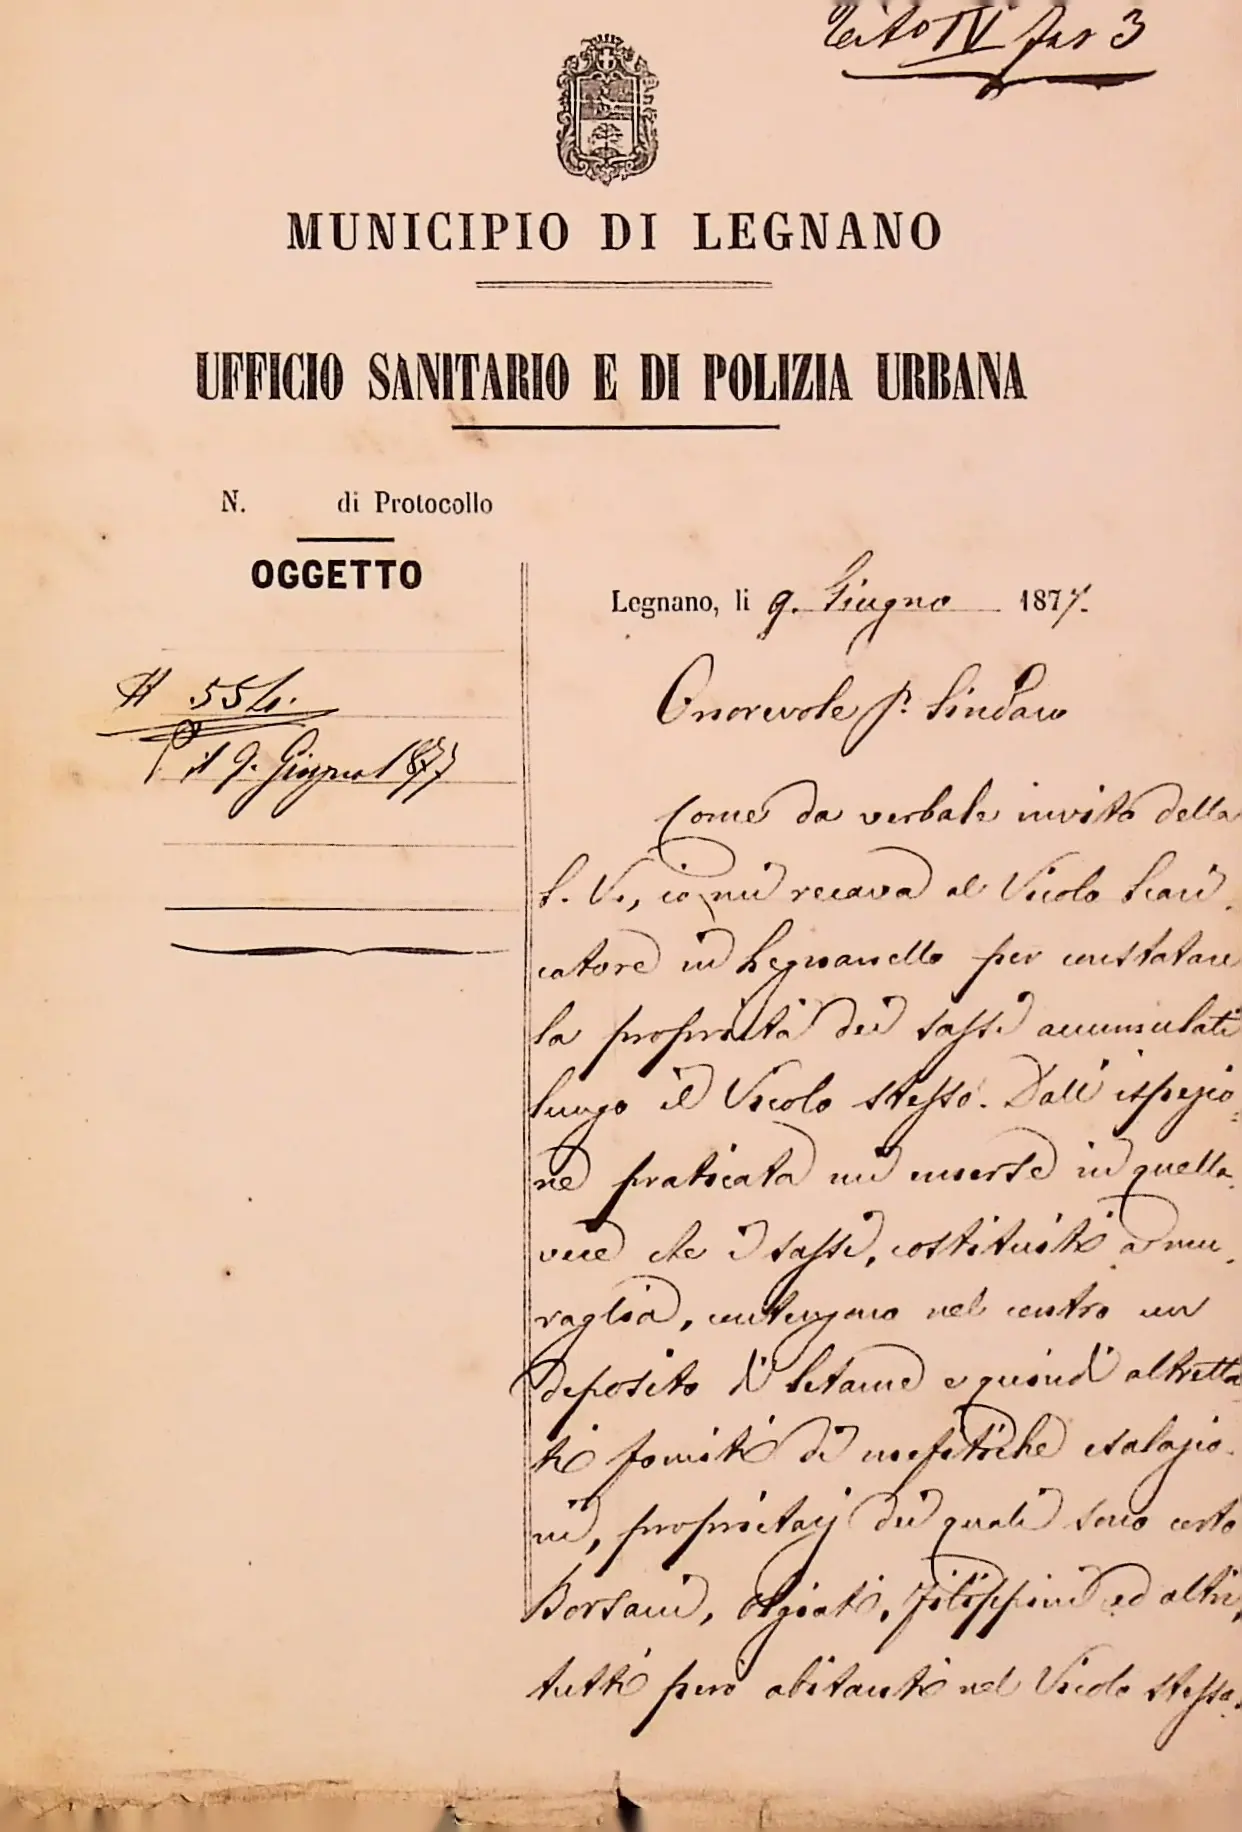 Tito IV fas 3
MUNICIPIO DI LEGNANO
UFFICIO SANITARIO E DI POLIZIA URBANA
N. di Protocollo
OGGETTO
Legnano, li 9. Giugno 1877.
N 554.
il 9. Giugno 1877
Onorevole Sr. Sindaco
Come da verbale invito della
S. V., io mi recava al Vicolo Scari-
catore in Legnanello per constatare
la proprietà dei sassi accumulati
lungo il Vicolo stesso. Dall'ispezio-
ne praticata mi emerse in quella
vece che i sassi, costituiti a mu-
raglia, contengono nel centro un
deposito di letame e quindi altretta
ti fomiti di mefitiche esalazio-
ni, proprietarj dei quali sono certo
Borsani, Olgiati, Filippini ed altri,
tutti però abitanti nel Vicolo stesso.